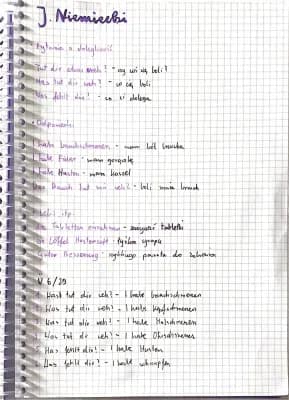 J. Niemiecki
Pytania o dolegliwość
Tut dir etwas weh? - czy coś cię boli?
Was tut dir weh? - co cię boli
Was fehlt dir? - co ci dolega
Odpowiedzi
I habe bauchschmerzen - mam ból brzucha
I habe Fieber - mam gorączkę
I habe Husten - mam kaszel
Der Bauch tut mir weh - boli mnie brzuch
Leki itp.
Tabletten einnehmen - zażywać tabletki
Löffel Hustensaft - łyżka syropu
Gute Besserung - szybkiego powrotu do zdrowia
W 6/70
Was tut dir weh? - I habe bauchschmerzen
Was tut dir weh? - I habe kopfschmerzen
Was tut dir weh? - I habe Halsschmerzen
Was tut dir weh? - I habe Ohrschmerzen
Was fehlt dir? - I habe Husten
Was fehlt dir? - I habe schnupfen